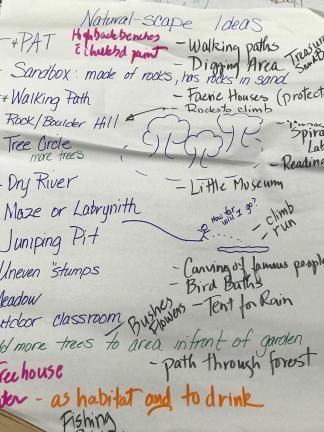 Natural-scape Ideas
PAT
High back benches
& chalkbd paint
Sandbox: made of rocks, has rocks in sand
* Walking Path
Rock/Boulder Hill
Tree Circle
more trees
- Dry River
Maze or Labrynith
Jumping Pit
Uneven "stumps
Meadow
outdoor classroom
add more trees to area infront of garden
Treehouse
Water - as habitat and to drink
Fishing
- Walking paths
- Digging Area
Treasure
- Faerie Houses (protect
Rocks to climb
Spira
Lab
- Reading
- Little Museum
How far will I go?
- climb
- run
- Carving of famous people
- Bird Baths
- Bushes
Flowers
- Tent for Rain
- path through forest